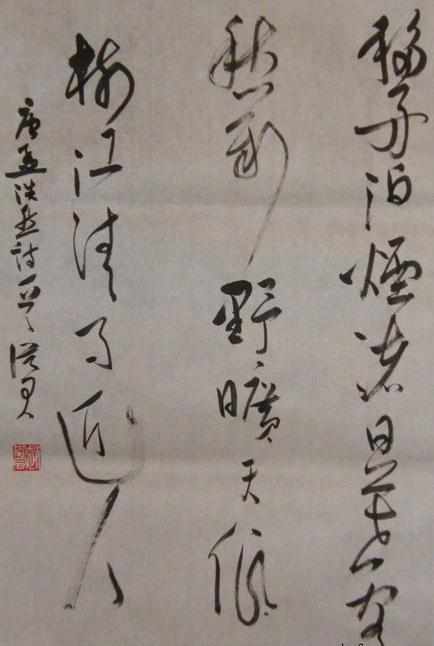 移舟泊煙渚日暮客
愁新野曠天低
樹江清月近人
唐孟浩然诗一首